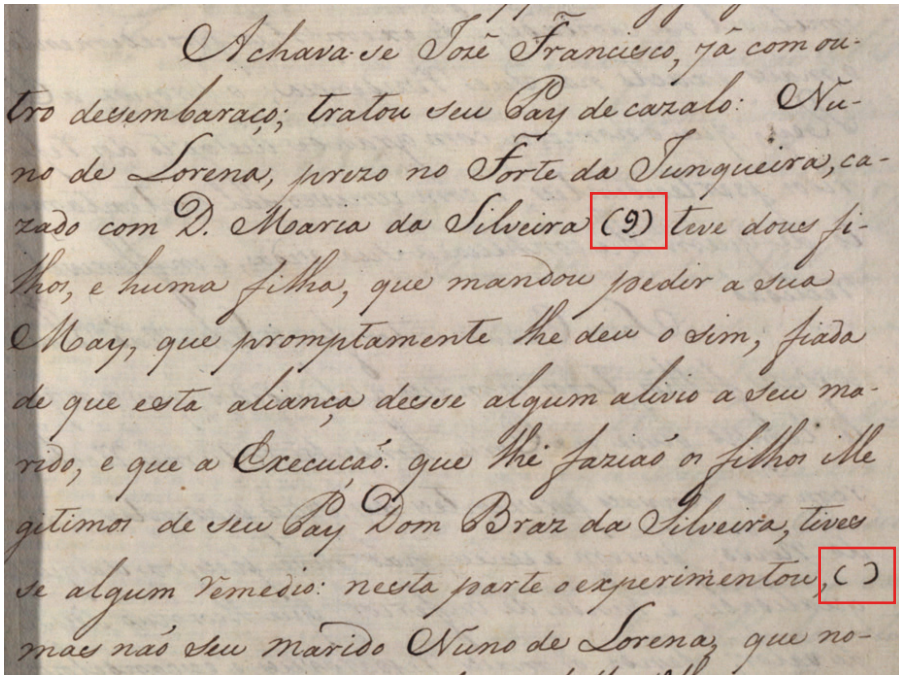 Achava-se Jozê Francisco, já com ou-
tro desembaraço; tratou seu Pay de cazalo: Nu-
no de Lorena, prezo no Forte da Junqueira, ca-
zado com D. Maria da Silveira (9) teve dous fi-
lhos, e huma filha, que mandou pedir a sua
May, que promptamente lhe deu o sim, fiada
de que esta aliança desse algum alivio a seu ma-
rido, e que a Execuçaó. que lhe faziaó os filhos ille
gitimos de seu Pay Dom Braz da Silveira, tives
se algum remedio: nesta parte o experimentou, ( )
mas naó seu marido Nuno de Lorena, que no-